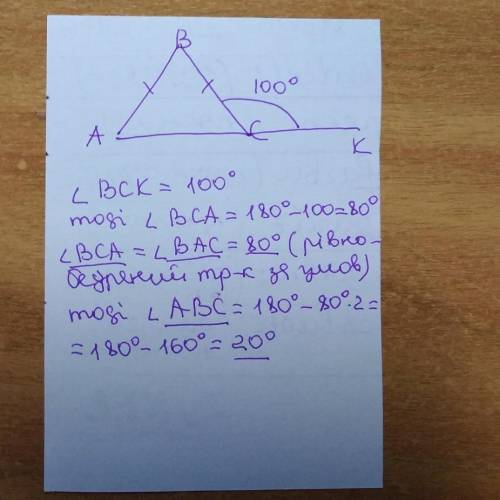 B
100°
A
C
K
∠ BCK = 100°
тоді ∠ BCA = 180°-100=80°
∠BCA = ∠BAC = 80° (рівно-
бедрений тр-к за умов)
тоді ∠ ABC = 180° - 80°·2=
= 180° - 160° = 20°